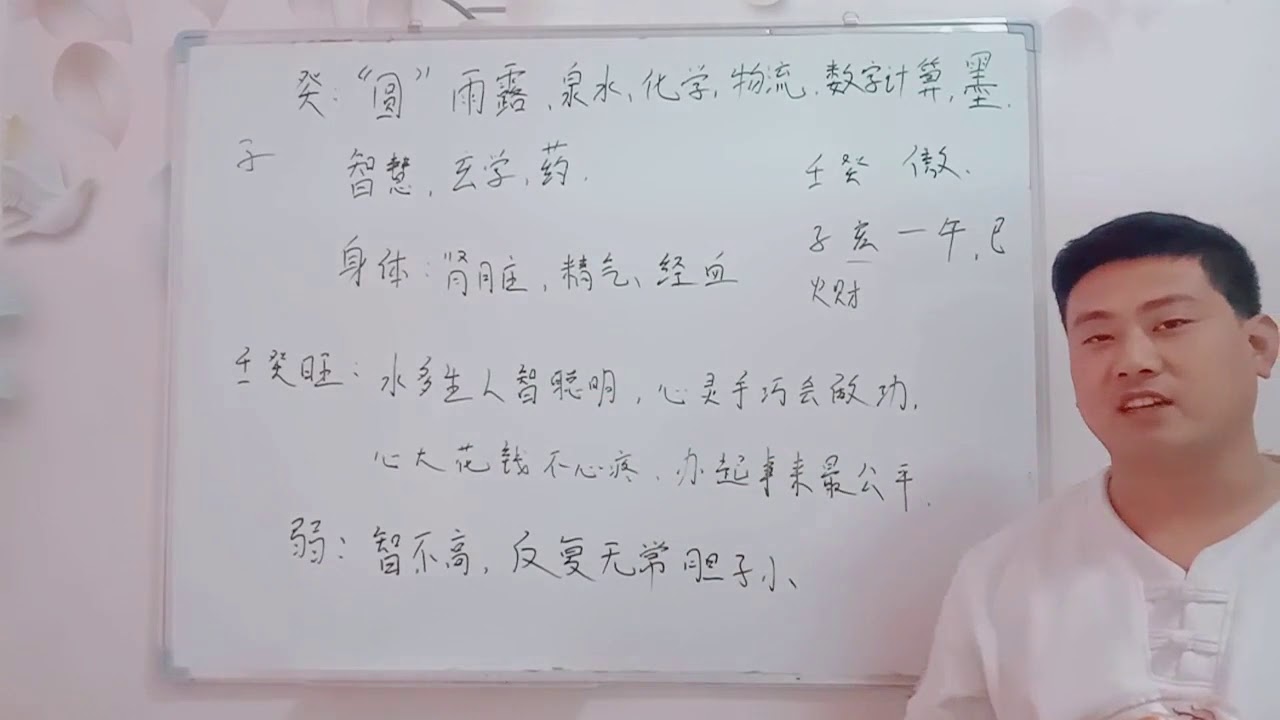 癸：“圆”雨露、泉水、化学、物流、数字计算、墨.
子 智慧、玄学、药.
壬癸 傲.
子亥一午、巳
火财
身体：肾脏、精气、经血
壬癸旺：水多生人智聪明，心灵手巧会做功.
心大花钱不心疼、办起事来最公平.
弱：智不高，反复无常胆子小、